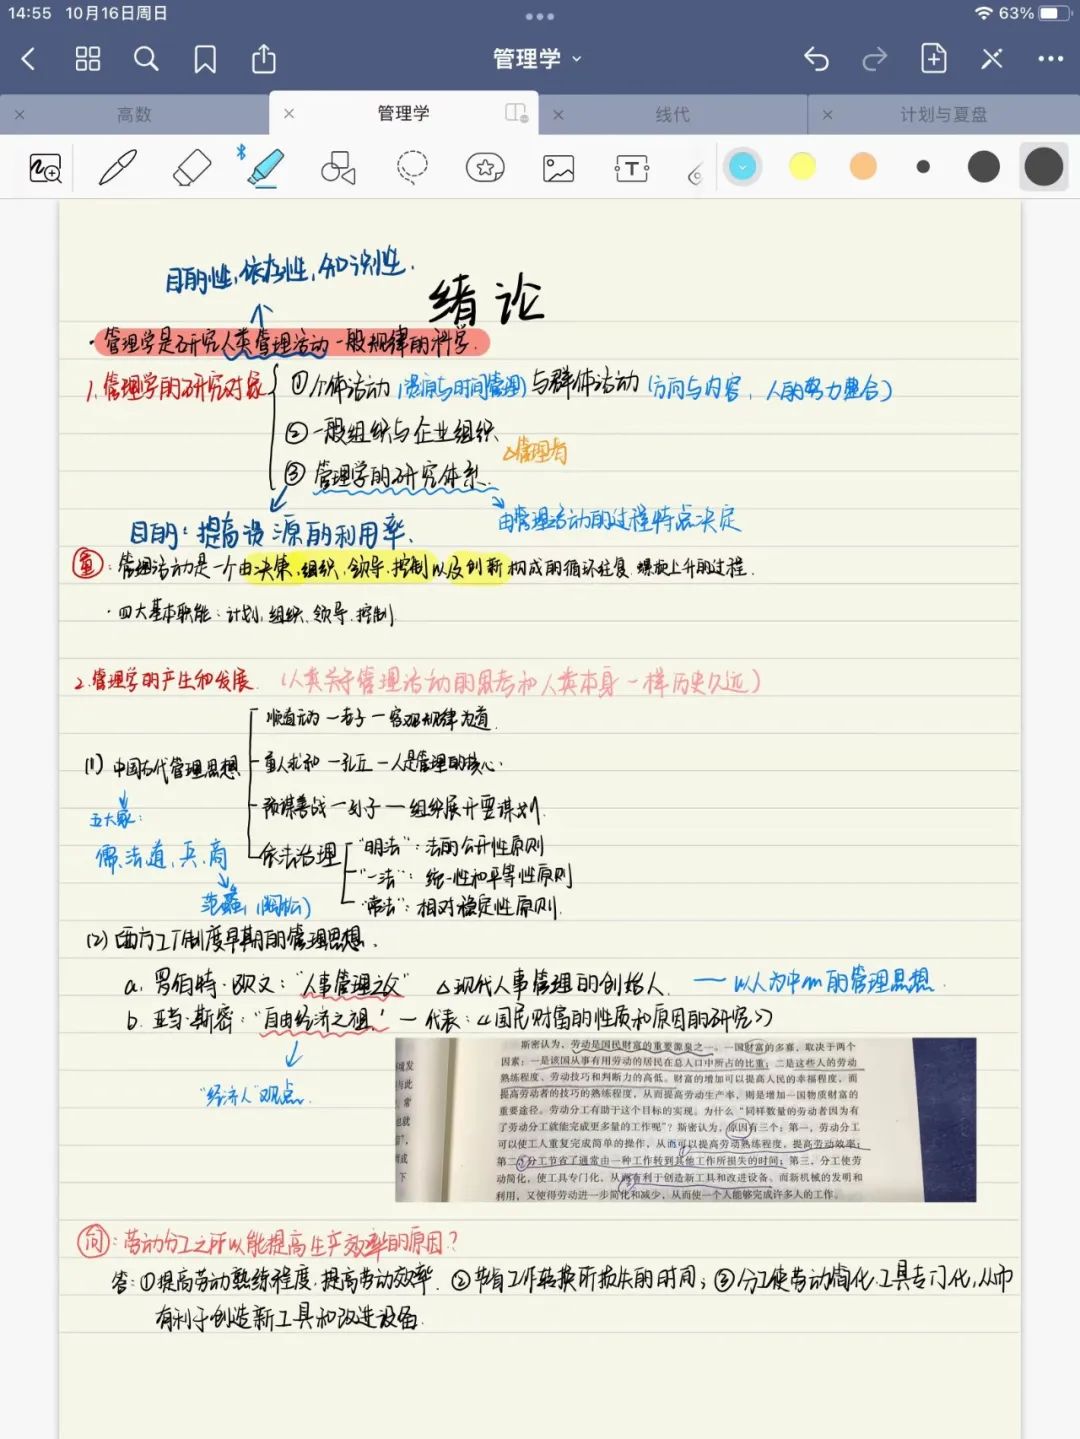 14:55 10月16日周日
63%
管理学
高数
管理学
线代
计划与夏盘
T
目的性,依存性,知识性.
绪论
·管理学是研究人类管理活动一般规律的科学.
1.管理学的研究对象
①个体活动(资源与时间管理)与群体活动(方向与内容,人的努力整合)
②一般组织与企业组织
△管理者
③管理学的研究体系.
由管理活动的过程特点决定
目的:提高资源的利用率.
重:管理活动是一个由决策,组织,领导,控制以及创新构成的循环往复,螺旋上升的过程.
·四大基本职能:计划,组织,领导,控制
2.管理学的产生和发展.(人类关于管理活动的思考和人类本身一样历史久远)
(1)中国古代管理思想
顺道无为—老子—客观规律为道.
重人求和—孔丘—人是管理的核心.
预谋善战—孙子—组织展开要谋划.
依法治理
"明法":法的公开性原则
"一法":统一性和平等性原则
"常法":相对稳定性原则.
五大家:
儒,法,道,兵,商
范蠡
(2)西方工厂制度早期的管理思想.
a.罗伯特·欧文:"人事管理之父" △现代人事管理的创始人 — 以人为中心的管理思想.
b.亚当·斯密:"自由经济之祖" —代表:《国民财富的性质和原因的研究》
"经济人"观点.
斯密认为,劳动是国民财富的重要源泉之一。一国财富的多寡,取决于两个
因素:一是该国从事有用劳动的居民在总人口中所占的比重;二是这些人的劳动
熟练程度、劳动技巧和判断力的高低。财富的增加可以提高人民的幸福程度,而
提高劳动者的技巧的熟练程度,从而提高劳动生产率,则是增加一国物质财富的
重要途径。劳动分工有助于这个目标的实现。为什么"同样数量的劳动者因为有
了劳动分工就能完成更多量的工作呢"?斯密认为,原因有三个:第一,劳动分工
可以使工人重复完成简单的操作,从而可以提高劳动熟练程度,提高劳动效率;
第二,分工节省了通常由一种工作转到其他工作所损失的时间;第三,分工使劳
动简化,使工具专门化,从而有利于创造新工具和改进设备。而新机械的发明和
利用,又使得劳动进一步简化和减少,从而使一个人能够完成许多人的工作。
问:劳动分工之所以能提高生产效率的原因?
答:①提高劳动熟练程度,提高劳动效率.②节省工作转换所损失的时间;③分工使劳动简化,工具专门化,从而
有利于创造新工具和改进设备.